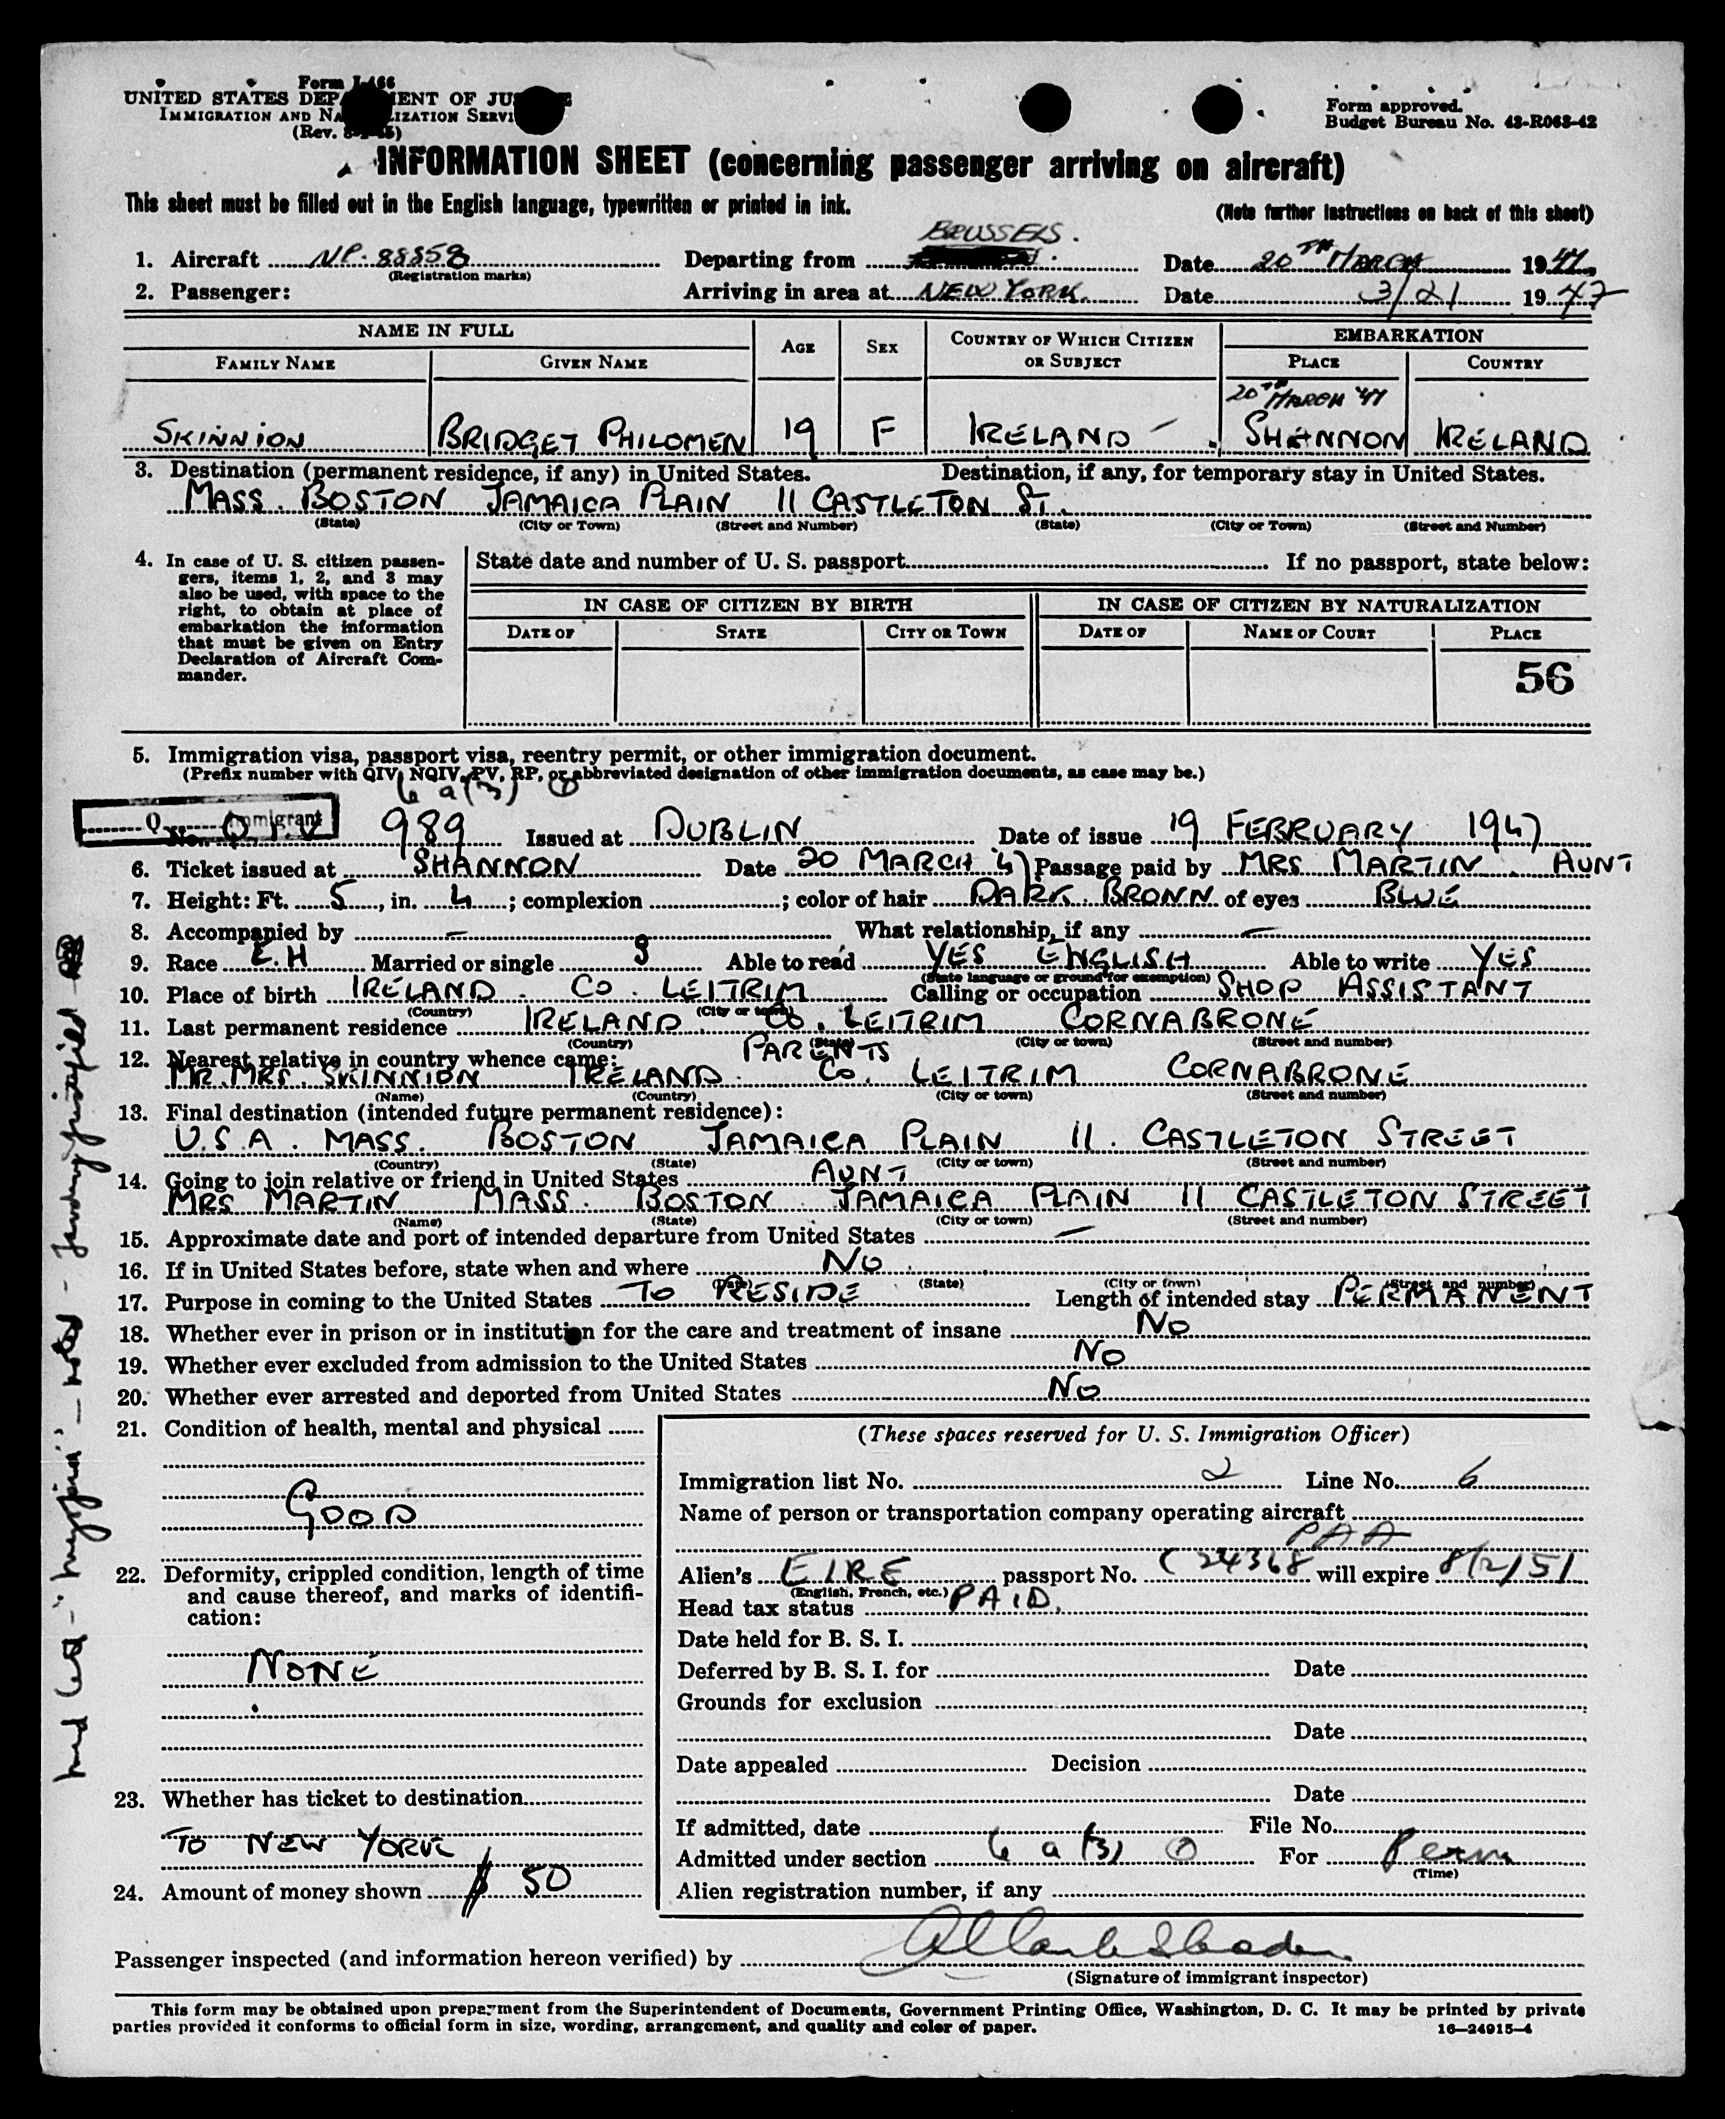 Form I-466
UNITED STATES DEPARTMENT OF JUSTICE
IMMIGRATION AND NATURALIZATION SERVICE
(Rev.
Form approved.
Budget Bureau No. 43-R063-42
INFORMATION SHEET (concerning passenger arriving on aircraft)
This sheet must be filled out in the English language, typewritten or printed in ink.
(Note further instructions on back of this sheet)
BRUSSELS.
1. Aircraft NP. 88858 Departing from Date 20TH MARCH 1947
(Registration marks)
2. Passenger: Arriving in area at NEW YORK. Date 3/21 1947
NAME IN FULL AGE SEX COUNTRY OF WHICH CITIZEN OR SUBJECT EMBARKATION
FAMILY NAME GIVEN NAME PLACE COUNTRY
20TH MARCH '47
SKINNION BRIDGET PHILOMEN 19 F IRELAND SHANNON IRELAND
3. Destination (permanent residence, if any) in United States. Destination, if any, for temporary stay in United States.
MASS. BOSTON JAMAICA PLAIN 11 CASTLETON ST.
(State) (City or Town) (Street and Number) (State) (City or Town) (Street and Number)
4. In case of U. S. citizen passen-
gers, items 1, 2, and 3 may
also be used, with space to the
right, to obtain at place of
embarkation the information
that must be given on Entry
Declaration of Aircraft Com-
mander.
State date and number of U. S. passport If no passport, state below:
IN CASE OF CITIZEN BY BIRTH IN CASE OF CITIZEN BY NATURALIZATION
DATE OF STATE CITY OR TOWN DATE OF NAME OF COURT PLACE
56
5. Immigration visa, passport visa, reentry permit, or other immigration document.
(Prefix number with QIV, NQIV, PV, RP, or abbreviated designation of other immigration documents, as case may be.)
6 a (3)
Q Immigrant
No. QIV 989 Issued at DUBLIN Date of issue 19 FEBRUARY 1947
6. Ticket issued at SHANNON Date 20 MARCH 47 Passage paid by MRS MARTIN. AUNT
7. Height: Ft. 5, in. 4; complexion ; color of hair DARK. BROWN of eyes BLUE
8. Accompanied by – What relationship, if any –
9. Race E.H Married or single S Able to read YES ENGLISH Able to write YES
(State language or ground for exemption)
10. Place of birth IRELAND. CO. LEITRIM Calling or occupation SHOP ASSISTANT
(Country) (City or town)
11. Last permanent residence IRELAND. CO. LEITRIM CORNABRONE
(Country) (State) (City or town) (Street and number)
12. Nearest relative in country whence came: PARENTS
MR. MRS. SKINNION IRELAND. CO. LEITRIM CORNABRONE
(Name) (Country) (City or town) (Street and number)
13. Final destination (intended future permanent residence):
U.S.A. MASS. BOSTON JAMAICA PLAIN 11. CASTLETON STREET
(Country) (State) (City or town) (Street and number)
14. Going to join relative or friend in United States AUNT
MRS MARTIN MASS. BOSTON. JAMAICA PLAIN 11 CASTLETON STREET
(Name) (State) (City or town) (Street and number)
15. Approximate date and port of intended departure from United States –
16. If in United States before, state when and where NO.
(Date) (State) (City or town) (Street and number)
17. Purpose in coming to the United States TO RESIDE Length of intended stay PERMANENT
18. Whether ever in prison or in institution for the care and treatment of insane NO
19. Whether ever excluded from admission to the United States NO
20. Whether ever arrested and deported from United States NO
21. Condition of health, mental and physical
GOOD
22. Deformity, crippled condition, length of time
and cause thereof, and marks of identifi-
cation:
NONE
23. Whether has ticket to destination
TO NEW YORK
24. Amount of money shown $ 50
(These spaces reserved for U. S. Immigration Officer)
Immigration list No. 2 Line No. 6
Name of person or transportation company operating aircraft
PAA
Alien's EIRE passport No. C 24368 will expire 8/2/51
(English, French, etc.)
Head tax status PAID.
Date held for B. S. I.
Deferred by B. S. I. for Date
Grounds for exclusion
Date
Date appealed Decision
Date
If admitted, date File No.
Admitted under section 6 a (3) For Perm
(Time)
Alien registration number, if any
Passenger inspected (and information hereon verified) by
(Signature of immigrant inspector)
This form may be obtained upon prepayment from the Superintendent of Documents, Government Printing Office, Washington, D. C. It may be printed by private
parties provided it conforms to official form in size, wording, arrangement, and quality and color of paper. 16—24915-4